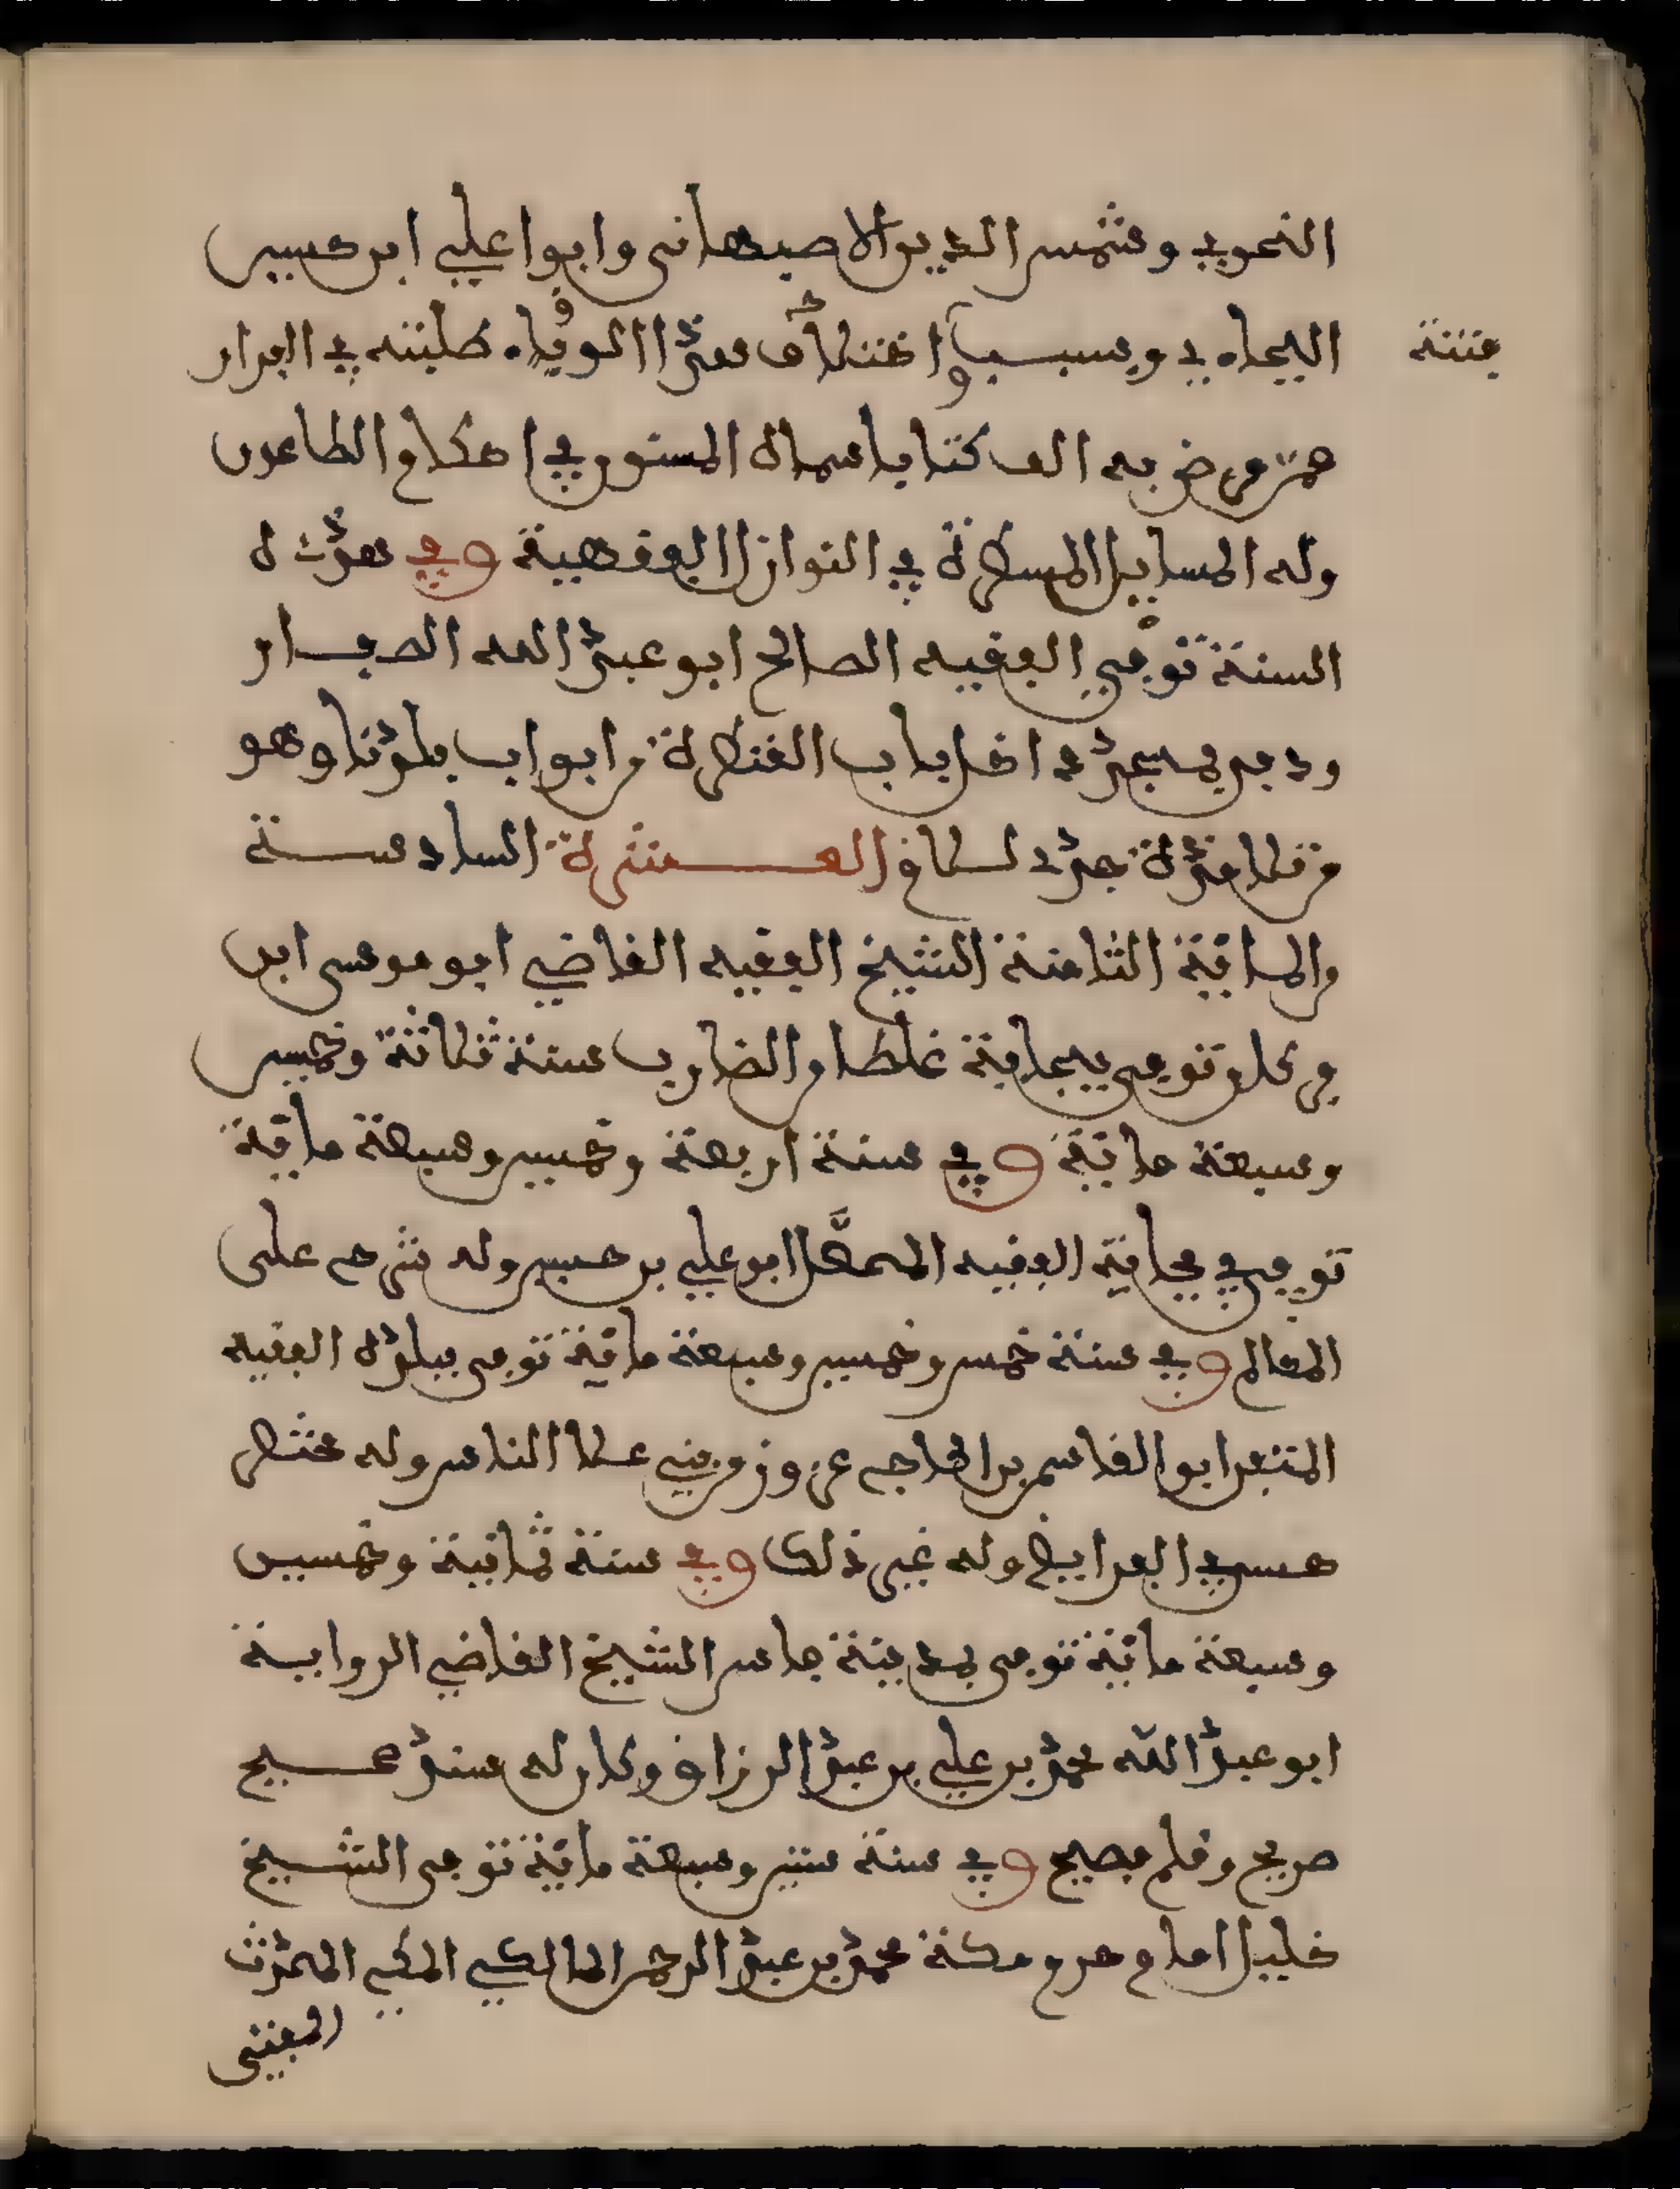 النحوي وشمس الدين الاصبهاني وابوا علي ابن حسين
فتنة
البجاءي وبسبب اختلاف هذا الوباء طلبته في الفرار
ممن مرض به الف كتابا سماه المسنون في احكام الطاعون
وله المسايل المسطرة في النوازل الفقهية وفي هذه
السنة توفي الفقيه الصالح ابو عبد الله الصفار
ودفن بمسجد داخل باب القنطرة من ابواب بلدنا وهو
من تلامذة جدد لسلافي العشرة السادسة
من الماية الثامنة الشيخ الفقيه القاضي ابو موسى ابن
فرحان توفي ببجاية غلطا من الضارب سنة ثلاثة وخمسين
وسبعة ماية وفي سنة اربعة وخمسين وسبعة ماية
توفي في بجاية الفقيه المحصل ابو علي بن حسين وله شرح على
المعالم وفي سنة خمس وخمسين وسبعة ماية توفي ببلده الفقيه
المتفنن ابو القاسم بن الحاج عزوز من بني عطا الناس وله مختصر
حسن في الفرايض وله غير ذلك وفي سنة ثمانية وخمسين
وسبعة ماية توفي بمدينة فاس الشيخ القاضي الرواية
ابو عبد الله محمد بن علي بن عبد الرزاق وكان له سند صحيح
صريح وقلم فصيح وفي سنة ستين وسبعة ماية توفي الشيخ
خليل امام حرم مكة محمد بن عبد الرحمن المالكي المكي المحدث
المفتي